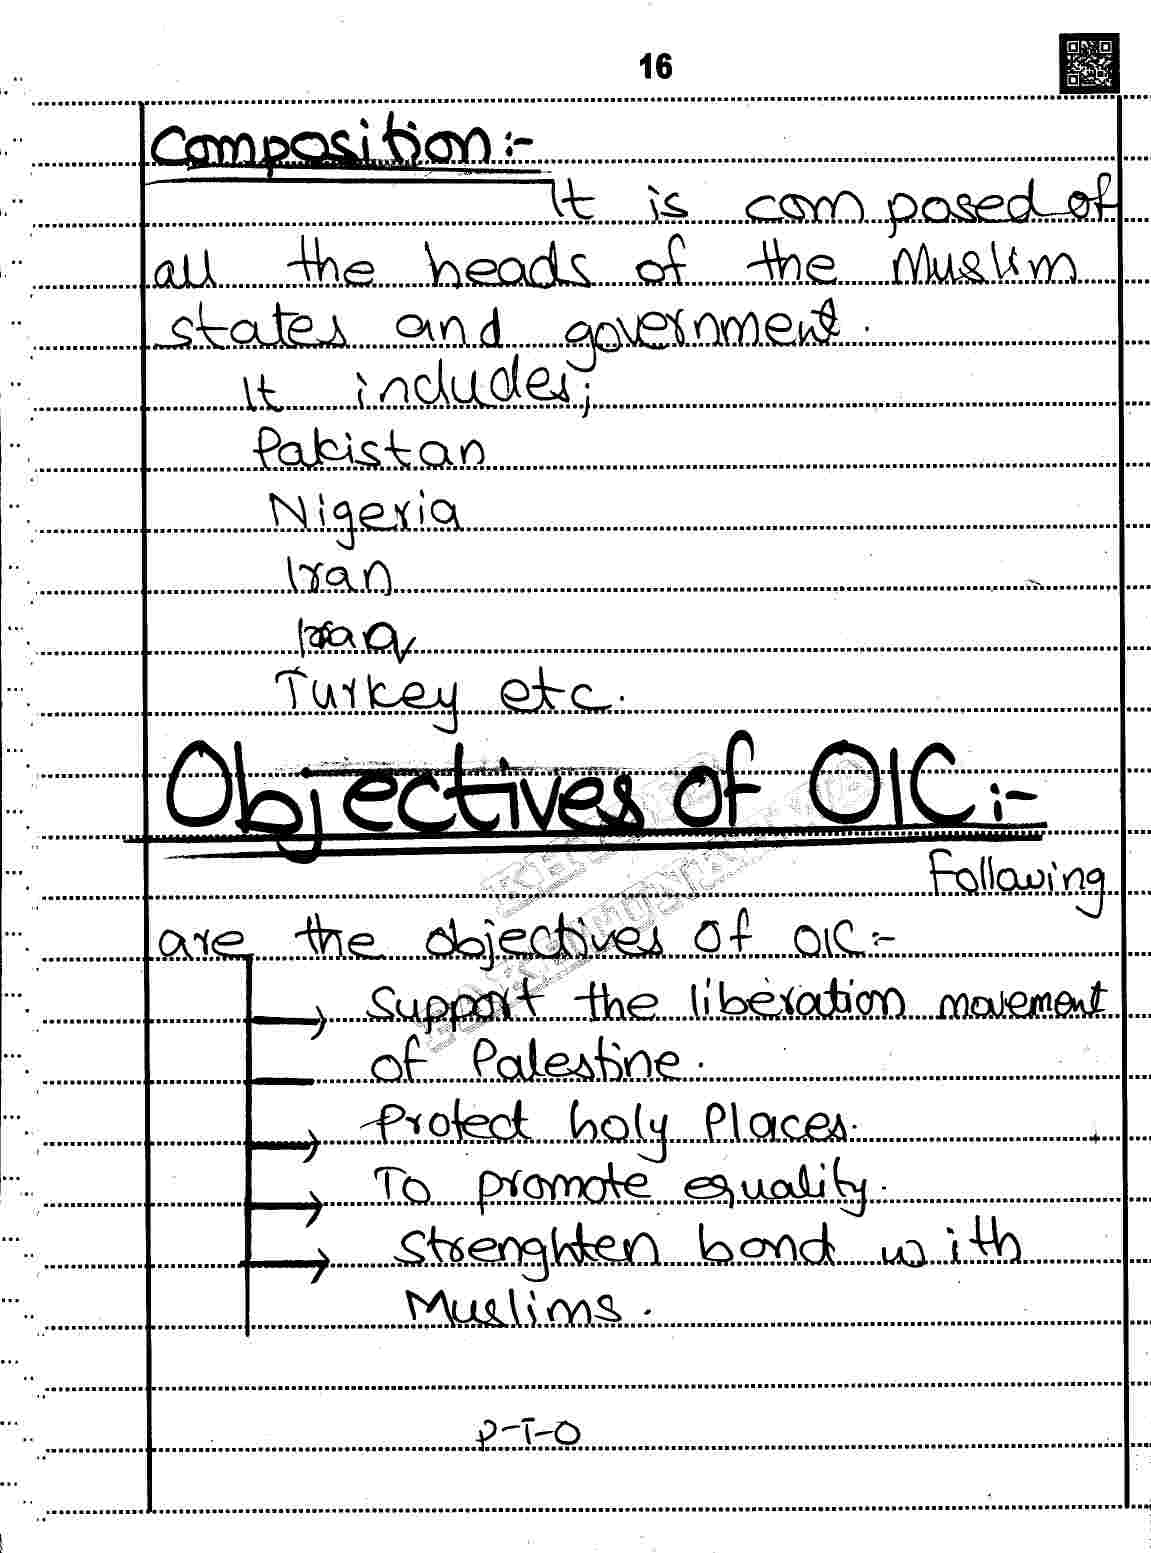 16
Composition:-
It is composed of
all the heads of the Muslim
states and government.
It includes;
Pakistan
Nigeria
Iran
Iraq
Turkey etc.
Objectives of OIC:-
Following
are the objectives of OIC:-
Support the liberation movement
of Palestine.
Protect holy Places.
To promote equality.
Strenghten bond with
Muslims.
P-T-O